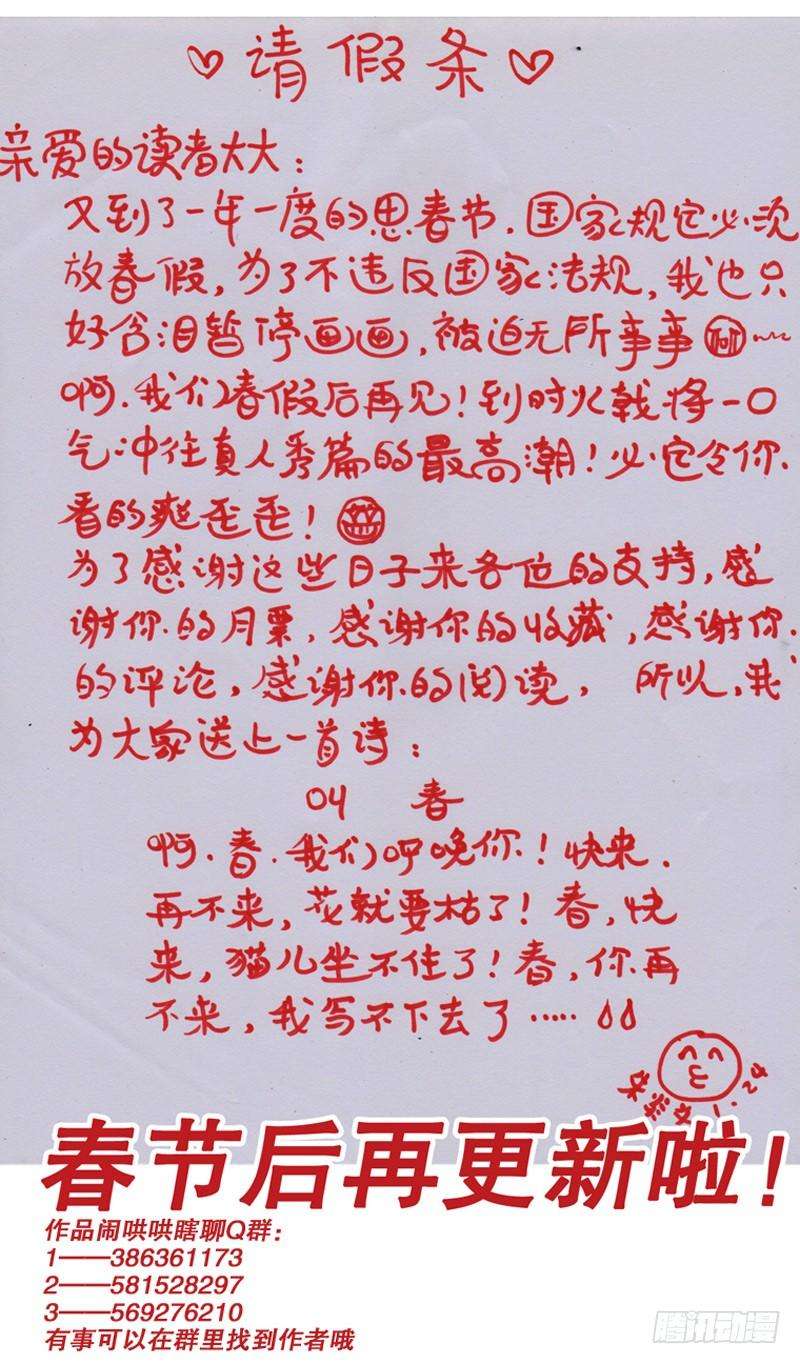 ♡请假条♡
亲爱的读者大大：
又到了一年一度的思春节，国家规定必须
放春假，为了不违反国家法规，我也只
好含泪暂停画画，被迫无所事事~~
啊，我们春假后再见！到时火鸡将一口
气冲往真人秀篇的最高潮！必定令你
看的爽歪歪！
为了感谢这些日子来各位的支持，感
谢你的月票，感谢你的收藏，感谢你
的评论，感谢你的阅读， 所以，我
为大家送上一首诗：
04 春
啊，春，我们呼唤你！快来，
再不来，花就要枯了！春，快
来，猫儿坐不住了！春，你再
不来，我写不下去了……
春节后再更新啦！
作品闹哄哄瞎聊Q群：
1——386361173
2——581528297
3——569276210
有事可以在群里找到作者哦
腾讯动漫